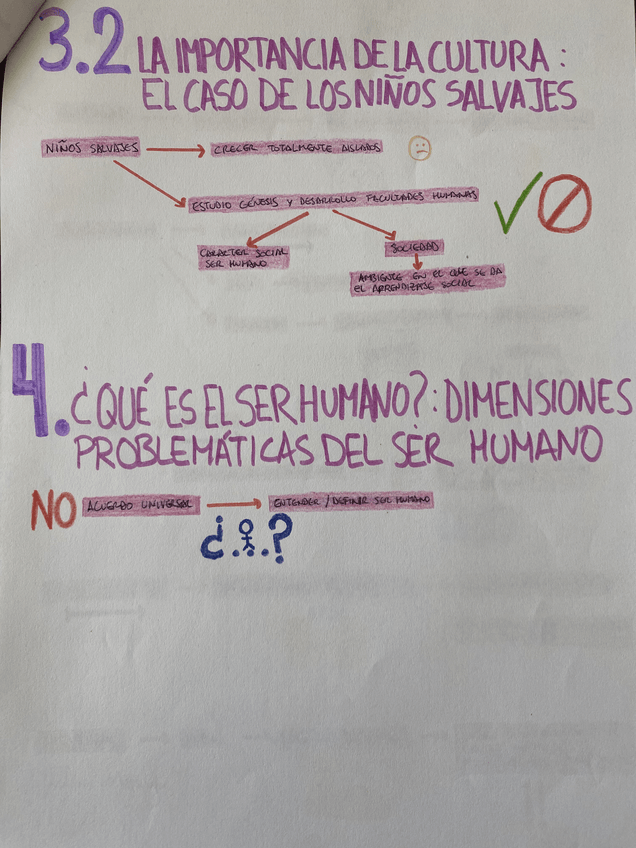 3.2 LA IMPORTANCIA DE LA CULTURA :
EL CASO DE LOS NIÑOS SALVAJES
NIÑOS SALVAJES
CRECER TOTALMENTE AISLADOS
ESTUDIO GÉNESIS Y DESARROLLO FECULTADES HUMANAS
CARACTER SOCIAL
SER HUMANO
SOCIEDAD
AMBIENTE EN EL QUE SE DA
EL APRENDIZAJE SOCIAL
4. ¿QUÉ ES EL SER HUMANO?: DIMENSIONES
PROBLEMÁTICAS DEL SER HUMANO
NO ACUERDO UNIVERSAL
ENTENDER / DEFINIR SER HUMANO
¿ . . ?